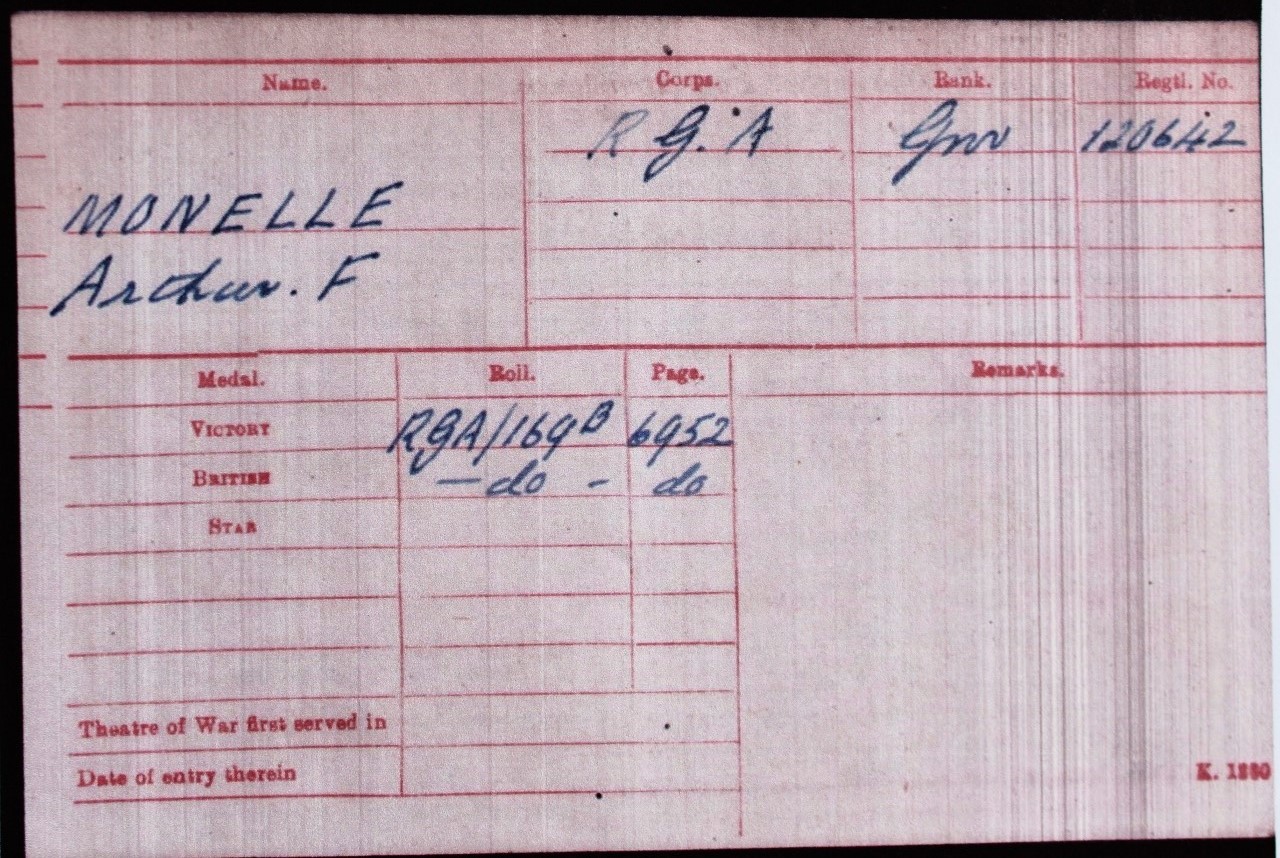 Name. Corps. Rank. Regtl. No.
R G. A Gnr 120642
MONELLE
Arthur. F
Medal. Roll. Page. Remarks.
VICTORY RGA/169B 6952
BRITISH —do - do
STAR
Theatre of War first served in
Date of entry therein
K. 1380